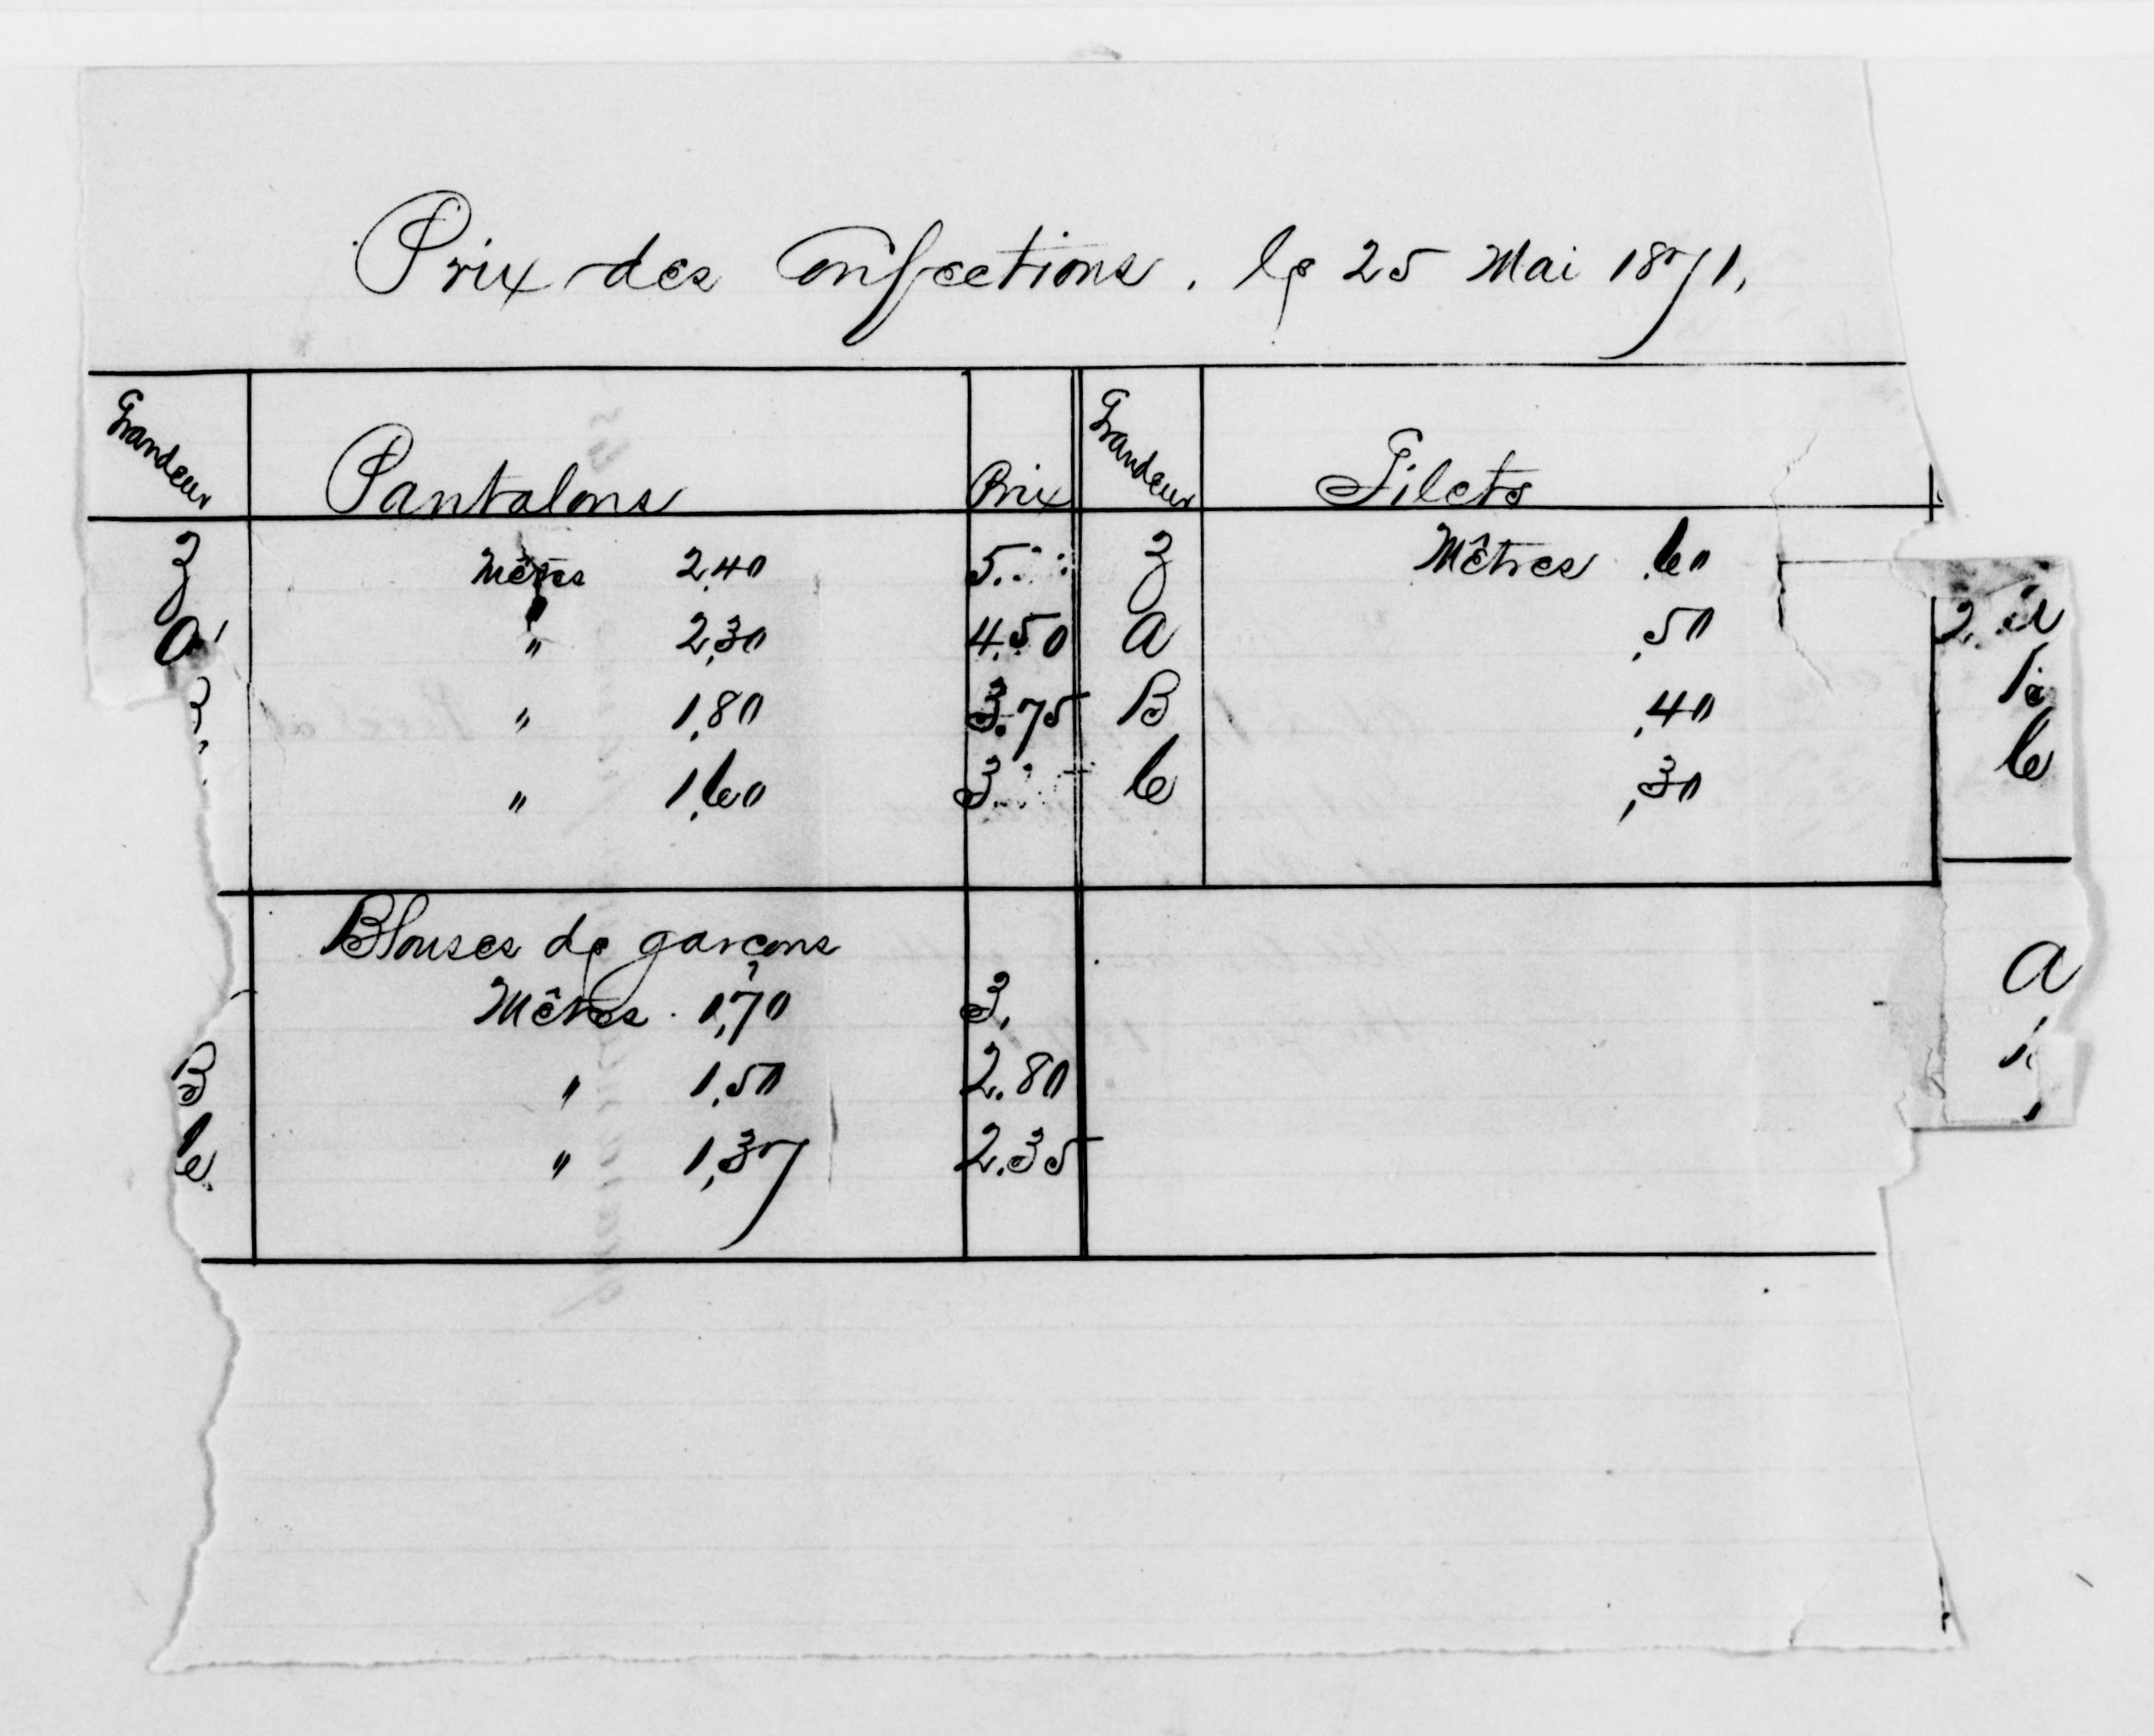 Prix des Confections. le 25 Mai 1871,
Grandeur Pantalons Prix Grandeur Gilets
Z Mètres 2,40 5. Z Mêtres .60
A " 2,30 4.50 A ,50
B " 1,80 3.75 B ,40
" 1,60 3. C ,30
Blouses de garçons
Mêtres 1,70 3.
B " 1,50 2.80
C " 1,37 2.35
C
A